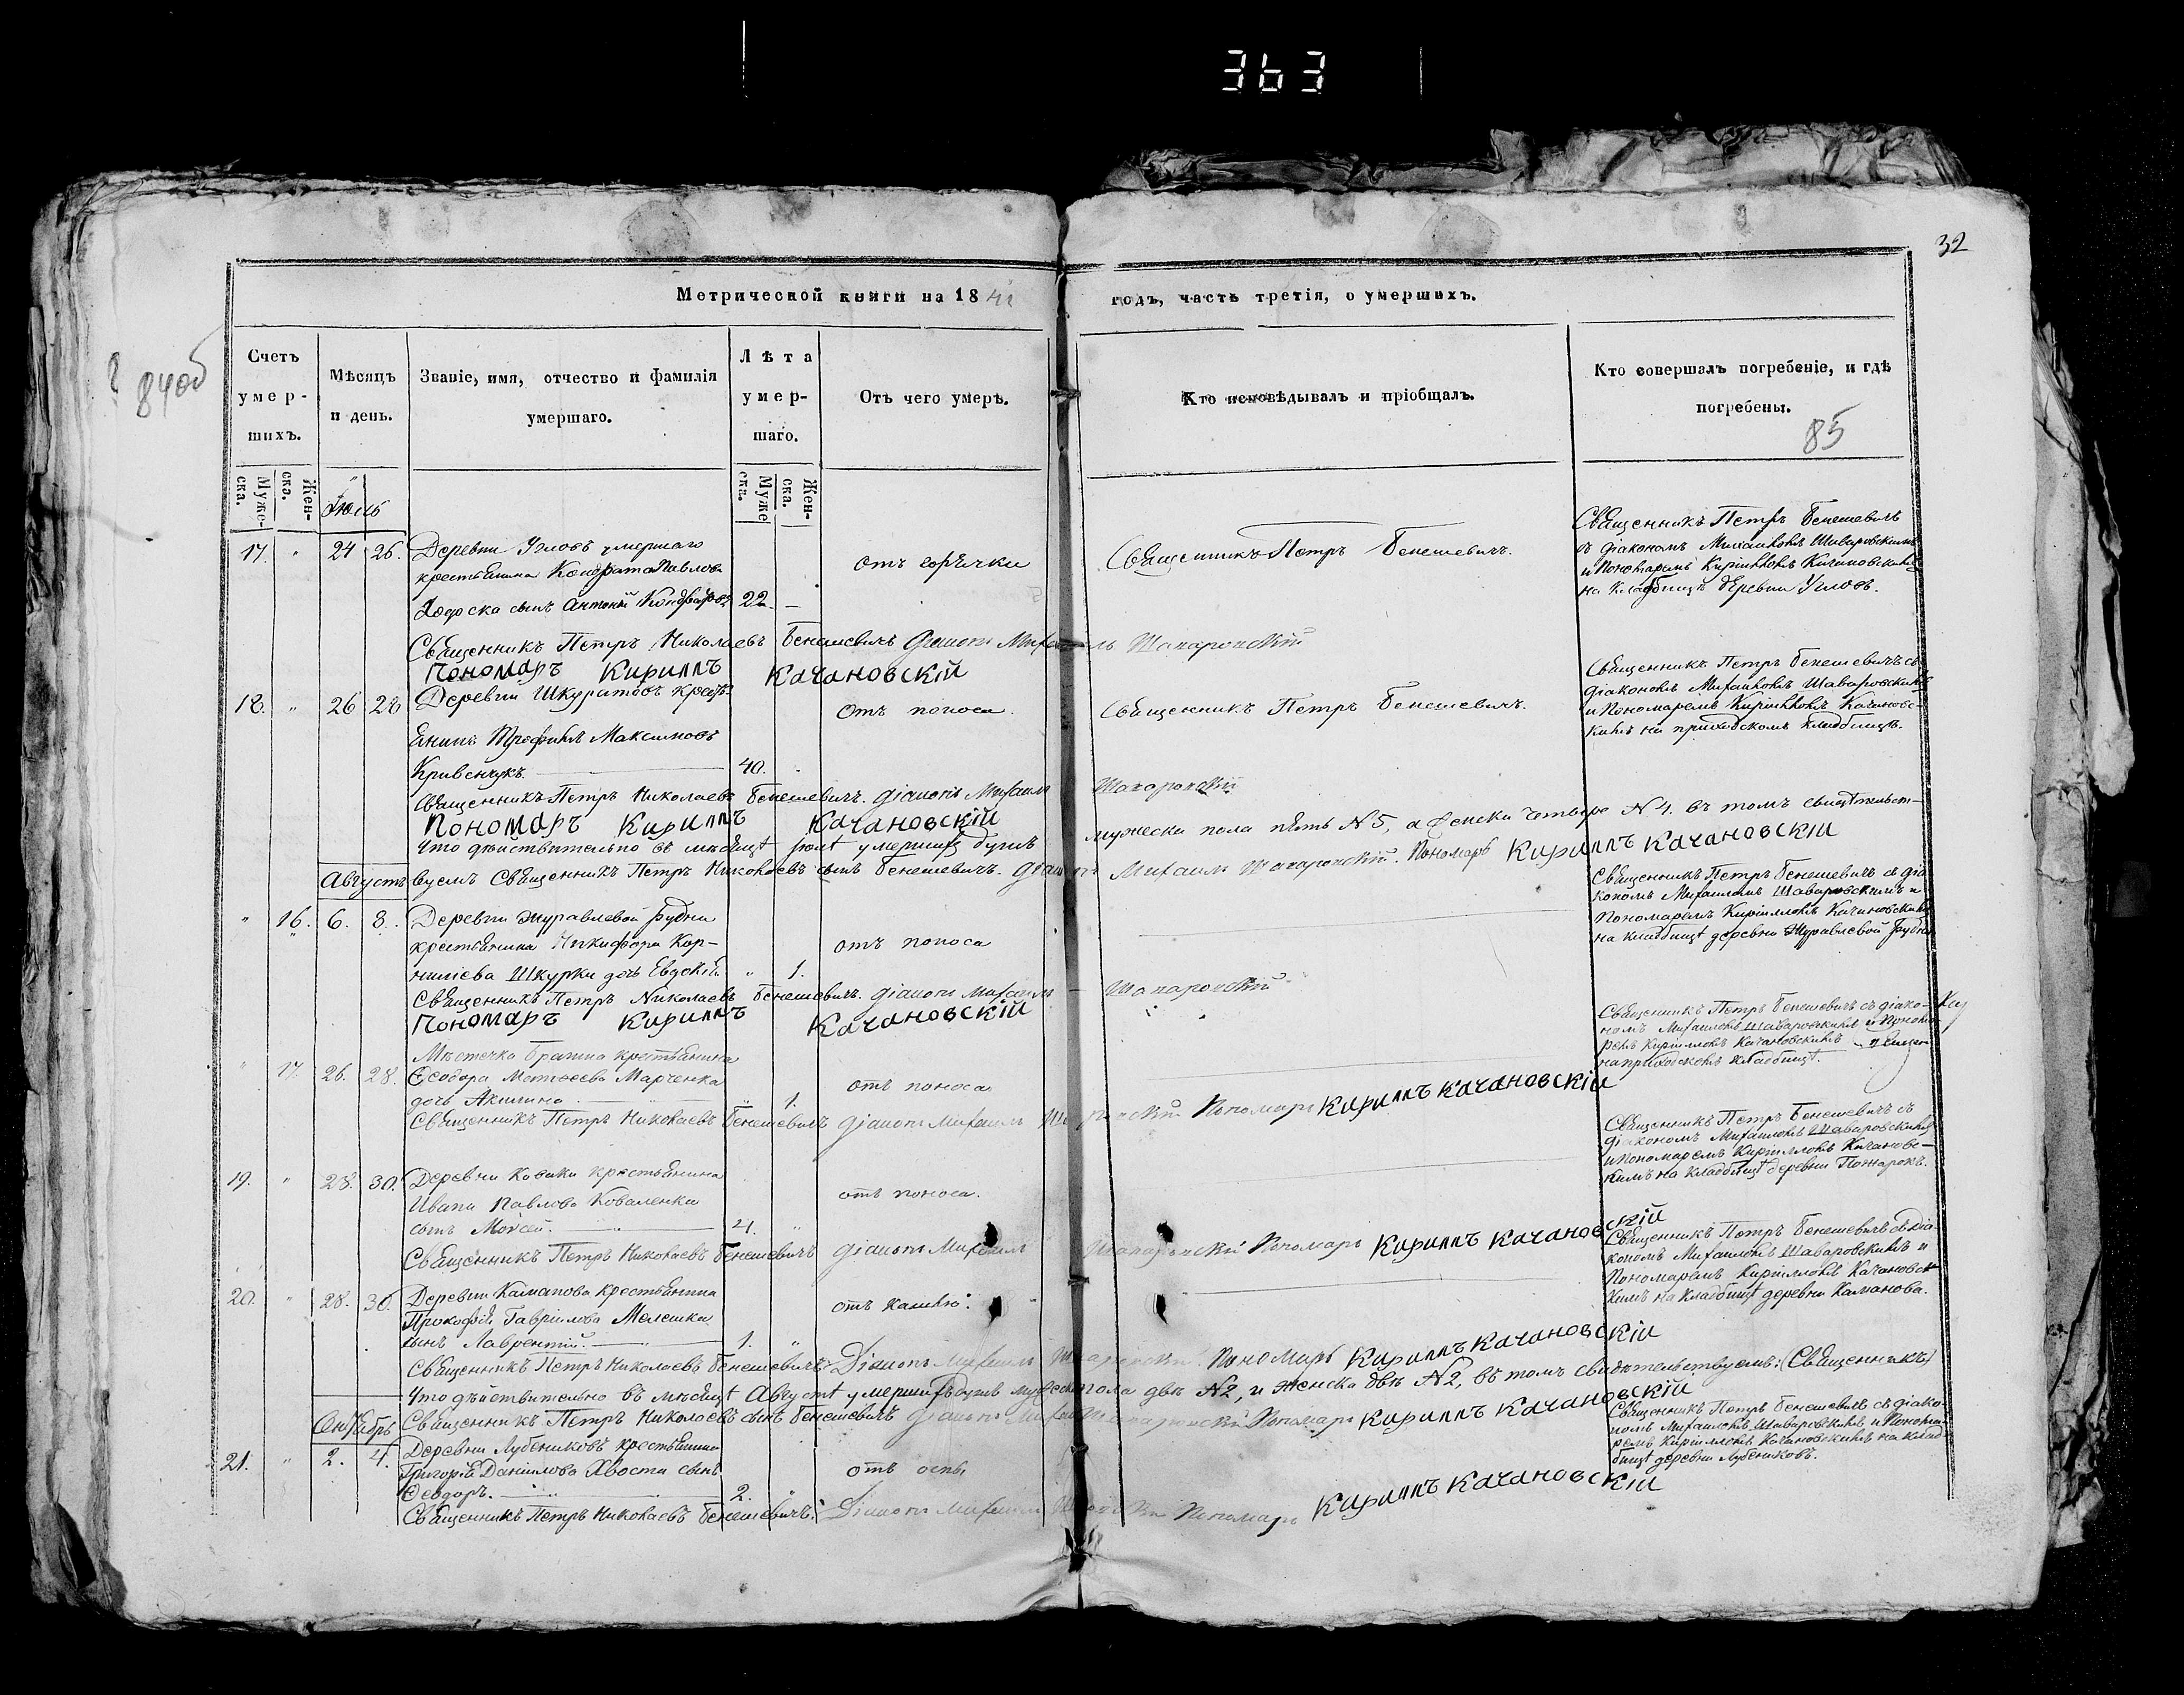 363
32
Метрической книги на 18
годъ, часть третія, о умершихъ.
840б
Счетъ умер-шихъ.
Мѣсяцъ и день.
Званіе, имя, отчество и фамилія умершаго.
Лѣта умер-шаго.
Отъ чего умеръ.
Кто исповѣдывалъ и пріобщалъ.
Кто совершалъ погребеніе, и гдѣ погребены.
85
Муже-ска.
Жен-ска.
Муже ска.
Жен-ска.
Іюль
17. " 24 26.
Деревни Угловъ умершаго
крестьянина Кондрата Павлова
сынъ Антоній 22. —
отъ горячки
Священникъ Петръ Бенешевичъ.
Священникъ Петръ Бенешевичъ
съ діакономъ Михаиломъ Шаваровскимъ
и Пономаремъ Кирилломъ Качановскимъ
на кладбищѣ деревни Угловъ.
Священникъ Петръ Николаевъ Бенешевичъ Діаконъ Михаилъ
Пономаръ Кириллъ Качановскій
18. " 26 28
Деревни Шкуратовъ крестъ-
янинъ Трофимъ Максимовъ
Кривенчукъ. 40.
отъ поноса.
Священникъ Петръ Бенешевичъ.
Священникъ Петръ Бенешевичъ съ
діакономъ Михаиломъ Шаваровскимъ
и Пономаремъ Кирилломъ Качановс-
кимъ на приходскомъ кладбищѣ.
Священникъ Петръ Николаевъ Бенешевичъ. Діаконъ Михаилъ
Пономаръ Кириллъ Качановскій
Что дѣйствительно въ мѣсяцѣ Іюлѣ умерших душъ мужеска пола пять №5, а женска четыре №4. въ томъ свидѣтельст-
вуемъ Священникъ Петръ Николаевъ сынъ Бенешевичъ. Діаконъ Михаилъ Пономаръ Кириллъ Качановскій
Августъ
" 16. 6. 8.
Деревни Журавлевой Рудни
крестьянина Никифора Кор-
ниліева Шкурки дочь Евдокія " 1.
отъ поноса
Священникъ Петръ Бенешевичъ съ діа
кономъ Михаиломъ Шаваровскимъ и
Пономаремъ Кирилломъ Качановскимъ
на кладбищѣ деревни Журавлевой Рудни
Священникъ Петръ Николаевъ Бенешевичъ. Діаконъ Михаилъ
Пономаръ Кириллъ Качановскій
" 17. 26. 28.
Мѣстечка Брагина крестьянина
Ѳеодора Матѳеева Марченка
дочь Акилина " 1.
отъ поноса
Священникъ Петръ Бенешевичъ съ діако-
номъ Михаиломъ Шаваровскимъ и Понома-
ремъ Кирилломъ Качановскимъ
на приходскомъ кладбищѣ.
Священникъ Петръ Николаевъ Бенешевичъ Діаконъ Михаилъ Пономаръ Кириллъ Качановскій
19. " 28. 30.
Деревни крестьянина
Ивана Павлова Коваленки
сынъ Мойсей. 4. "
отъ поноса.
Священникъ Петръ Бенешевичъ съ
діакономъ Михаиломъ Шаваровскимъ
и Пономаремъ Кирилломъ Качановс-
кимъ на кладбищѣ деревни Пожарокъ.
Священникъ Петръ Николаевъ Бенешевичъ Діаконъ Михаилъ Пономаръ Кириллъ Качановскій
20. " 28. 30.
Деревни Каманова крестьянина
Прокофія Гавріилова Мелешки
сынъ Лаврентій. 1. "
отъ кашлю.
Священникъ Петръ Бенешевичъ съ діа-
кономъ Михаиломъ Шаваровскимъ и
Пономаремъ Кирилломъ Качановс-
кимъ на кладбищѣ деревни Каманова.
Священникъ Петръ Николаевъ Бенешевичъ. Діаконъ Михаилъ Пономаръ Кириллъ Качановскій
Что дѣйствительно въ мѣсяцѣ Августѣ умерших душъ мужеска пола двѣ №2, и женска двѣ №2, въ томъ свидѣтельствуемъ: (Священникъ)
Священникъ Петръ Николаевъ сынъ Бенешевичъ Діаконъ Пономаръ Кириллъ Качановскій
21. " 2. 4.
Деревни Лубениковъ крестьянина
Григорія Даніилова Хвоста сынъ
Ѳеодоръ. 2.
отъ оспы
Священникъ Петръ Бенешевичъ съ діако-
номъ Михаиломъ Шаваровскимъ и Понома-
ремъ Кирилломъ Качановскимъ на клад-
бищѣ деревни Лубениковъ.
Священникъ Петръ Николаевъ Бенешевичъ. Діаконъ Михаилъ Пономаръ Кириллъ Качановскій